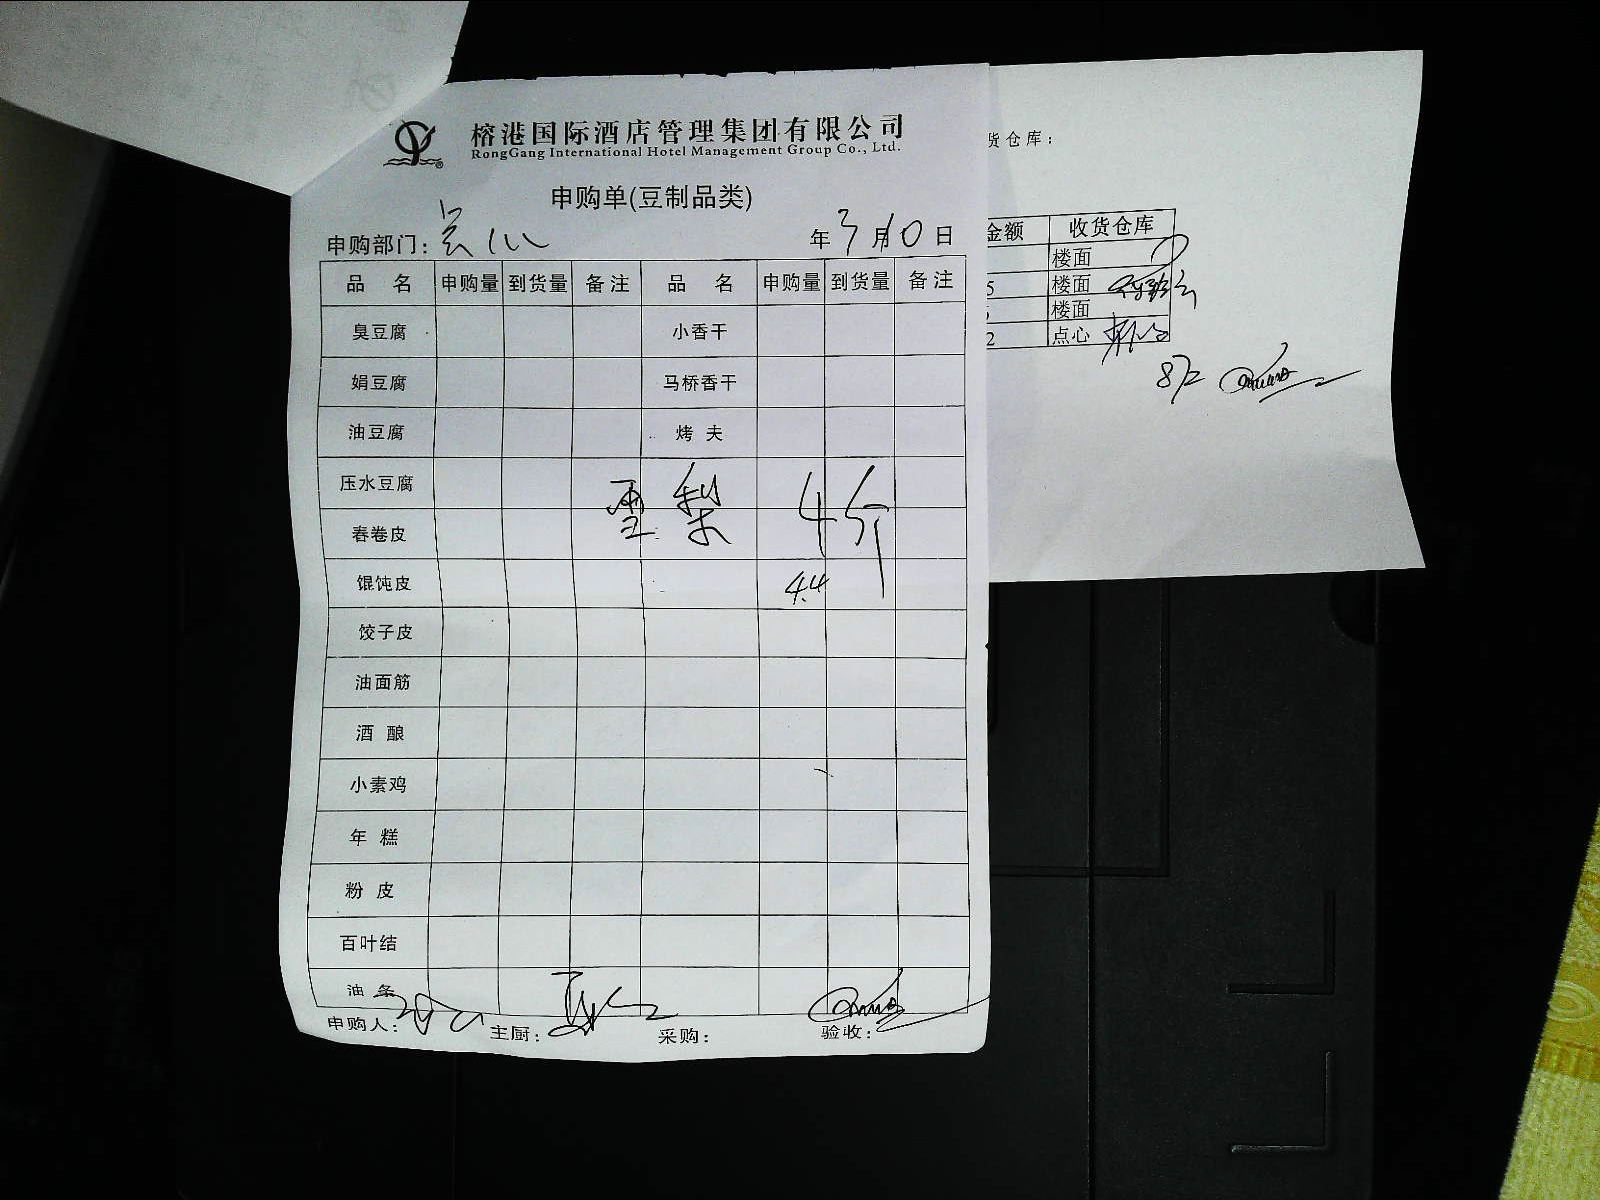 榕港国际酒店管理集团有限公司
RongGang International Hotel Management Group Co., Ltd.
申购单(豆制品类)
申购部门: 点心 年 3 月 10 日
品 名 申购量 到货量 备注 品 名 申购量 到货量 备注
臭豆腐 小香干
娟豆腐 马桥香干
油豆腐 烤 夫
压水豆腐
雪梨 4斤
春卷皮
馄饨皮 4.4
饺子皮
油面筋
酒 酿
小素鸡
年 糕
粉 皮
百叶结
油 条
申购人: 主厨: 采购: 验收:
货仓库:
金额 收货仓库
楼面
5 楼面
楼面
2 点心